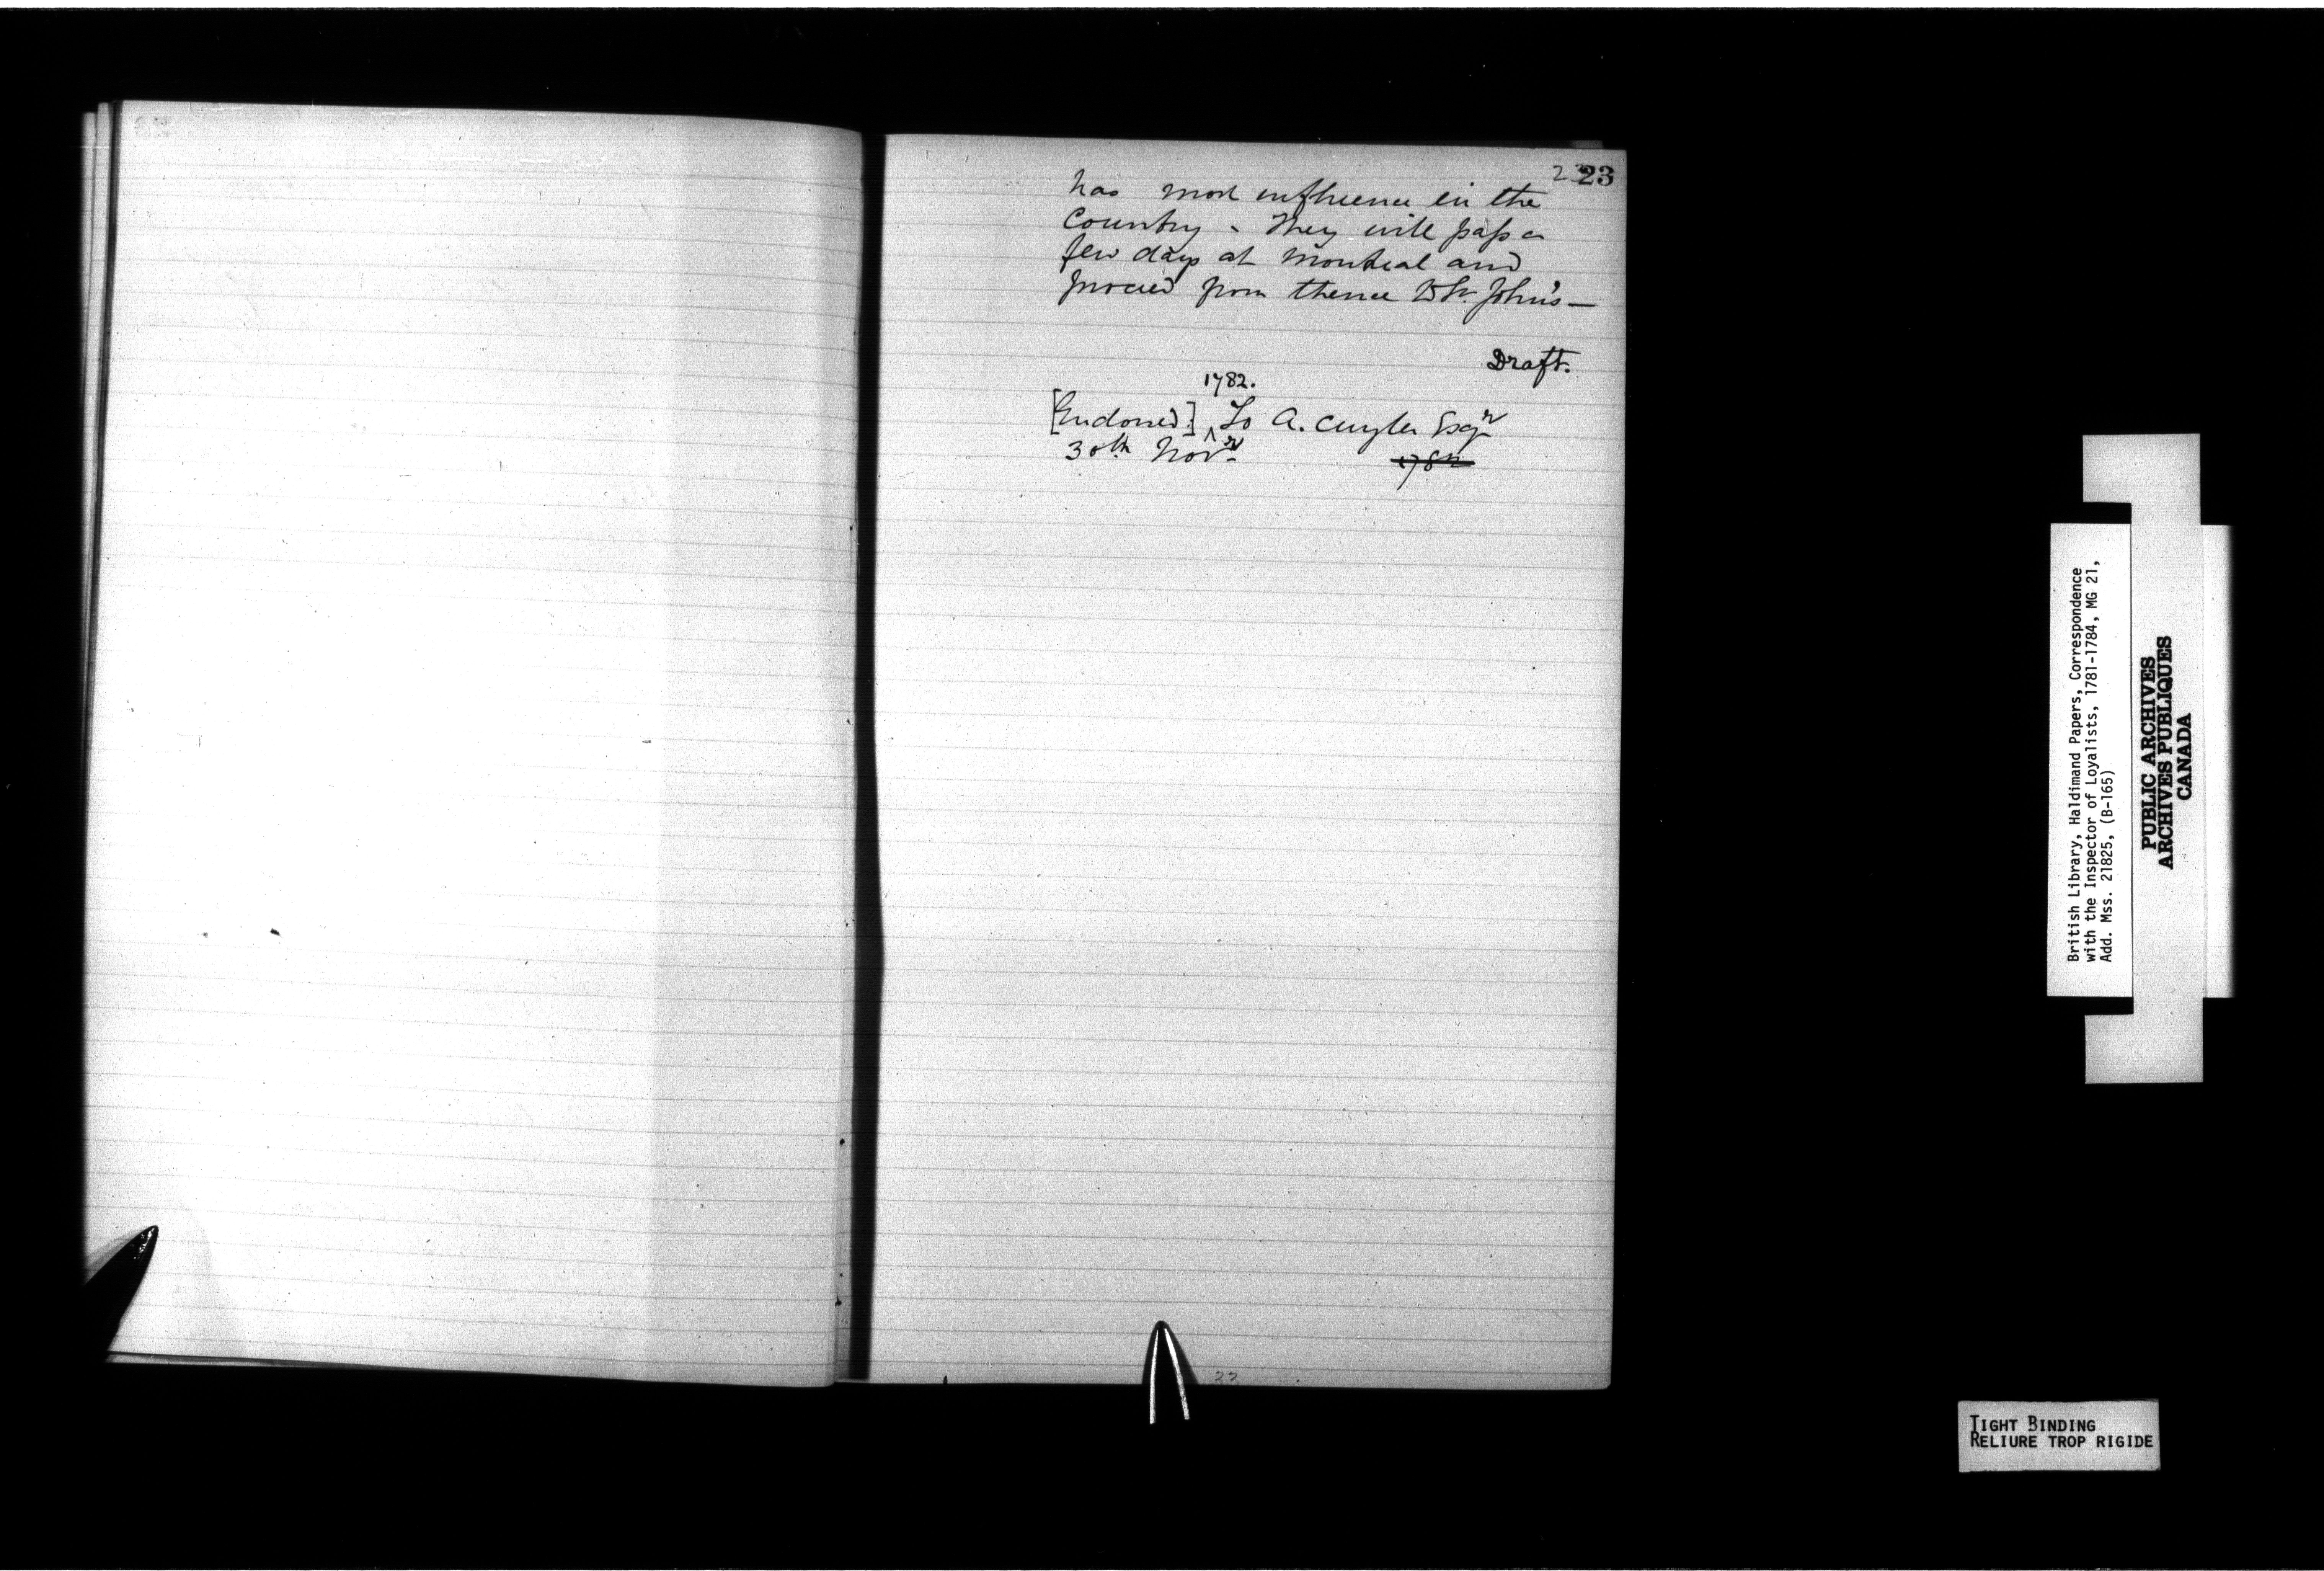 23 23
has most influence in the
Country - They will pass a
few days at Montreal and
proceed from thence to St. John's —
Draft.
1782.
[Endorsed.] ^ To A. Cuyler Esqr
30th Novr 1782
22
British Library, Haldimand Papers, Correspondence
with the Inspector of Loyalists, 1781-1784, MG 21,
Add. Mss. 21825, (B-165)
PUBLIC ARCHIVES
ARCHIVES PUBLIQUES
CANADA
TIGHT BINDING
RELIURE TROP RIGIDE